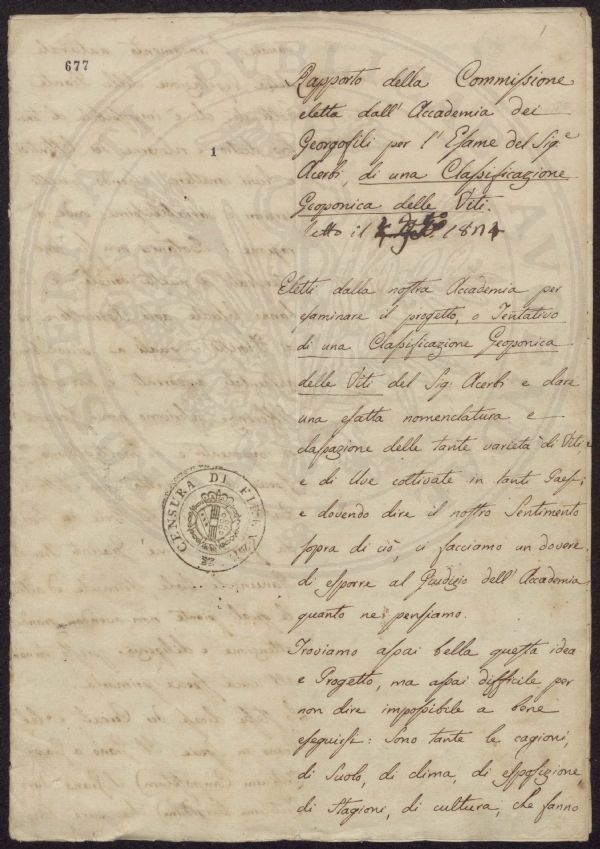 677
1
Rapporto della Commissione
eletta dall' Accademia dei
Georgofili per l'Esame del Sig.e
Acerbi, di una Classificazione
Geoponica delle Viti.
letto il 1814
Eletti dalla nostra Accademia per
esaminare il progetto, o Tentativo
di una Classificazione Geoponica
delle Viti del Sig: Acerbi e dare
una esatta nomenclatura e
classazione delle tante varietà di Viti
e di Uve coltivate in tanti Paesi;
e dovendo dire il nostro Sentimento
sopra di ciò, ci facciamo un dovere
di esporre al Giudizio dell' Accademia
quanto ne pensiamo.
Troviamo assai bella questa idea
e Progetto, ma assai difficile per
non dire impossibile a bene
eseguirsi: Sono tante le cagioni,
di Suolo, di clima, di esposizione
di Stagioni, di cultura, che fanno
CENSURA DI FIRENZE